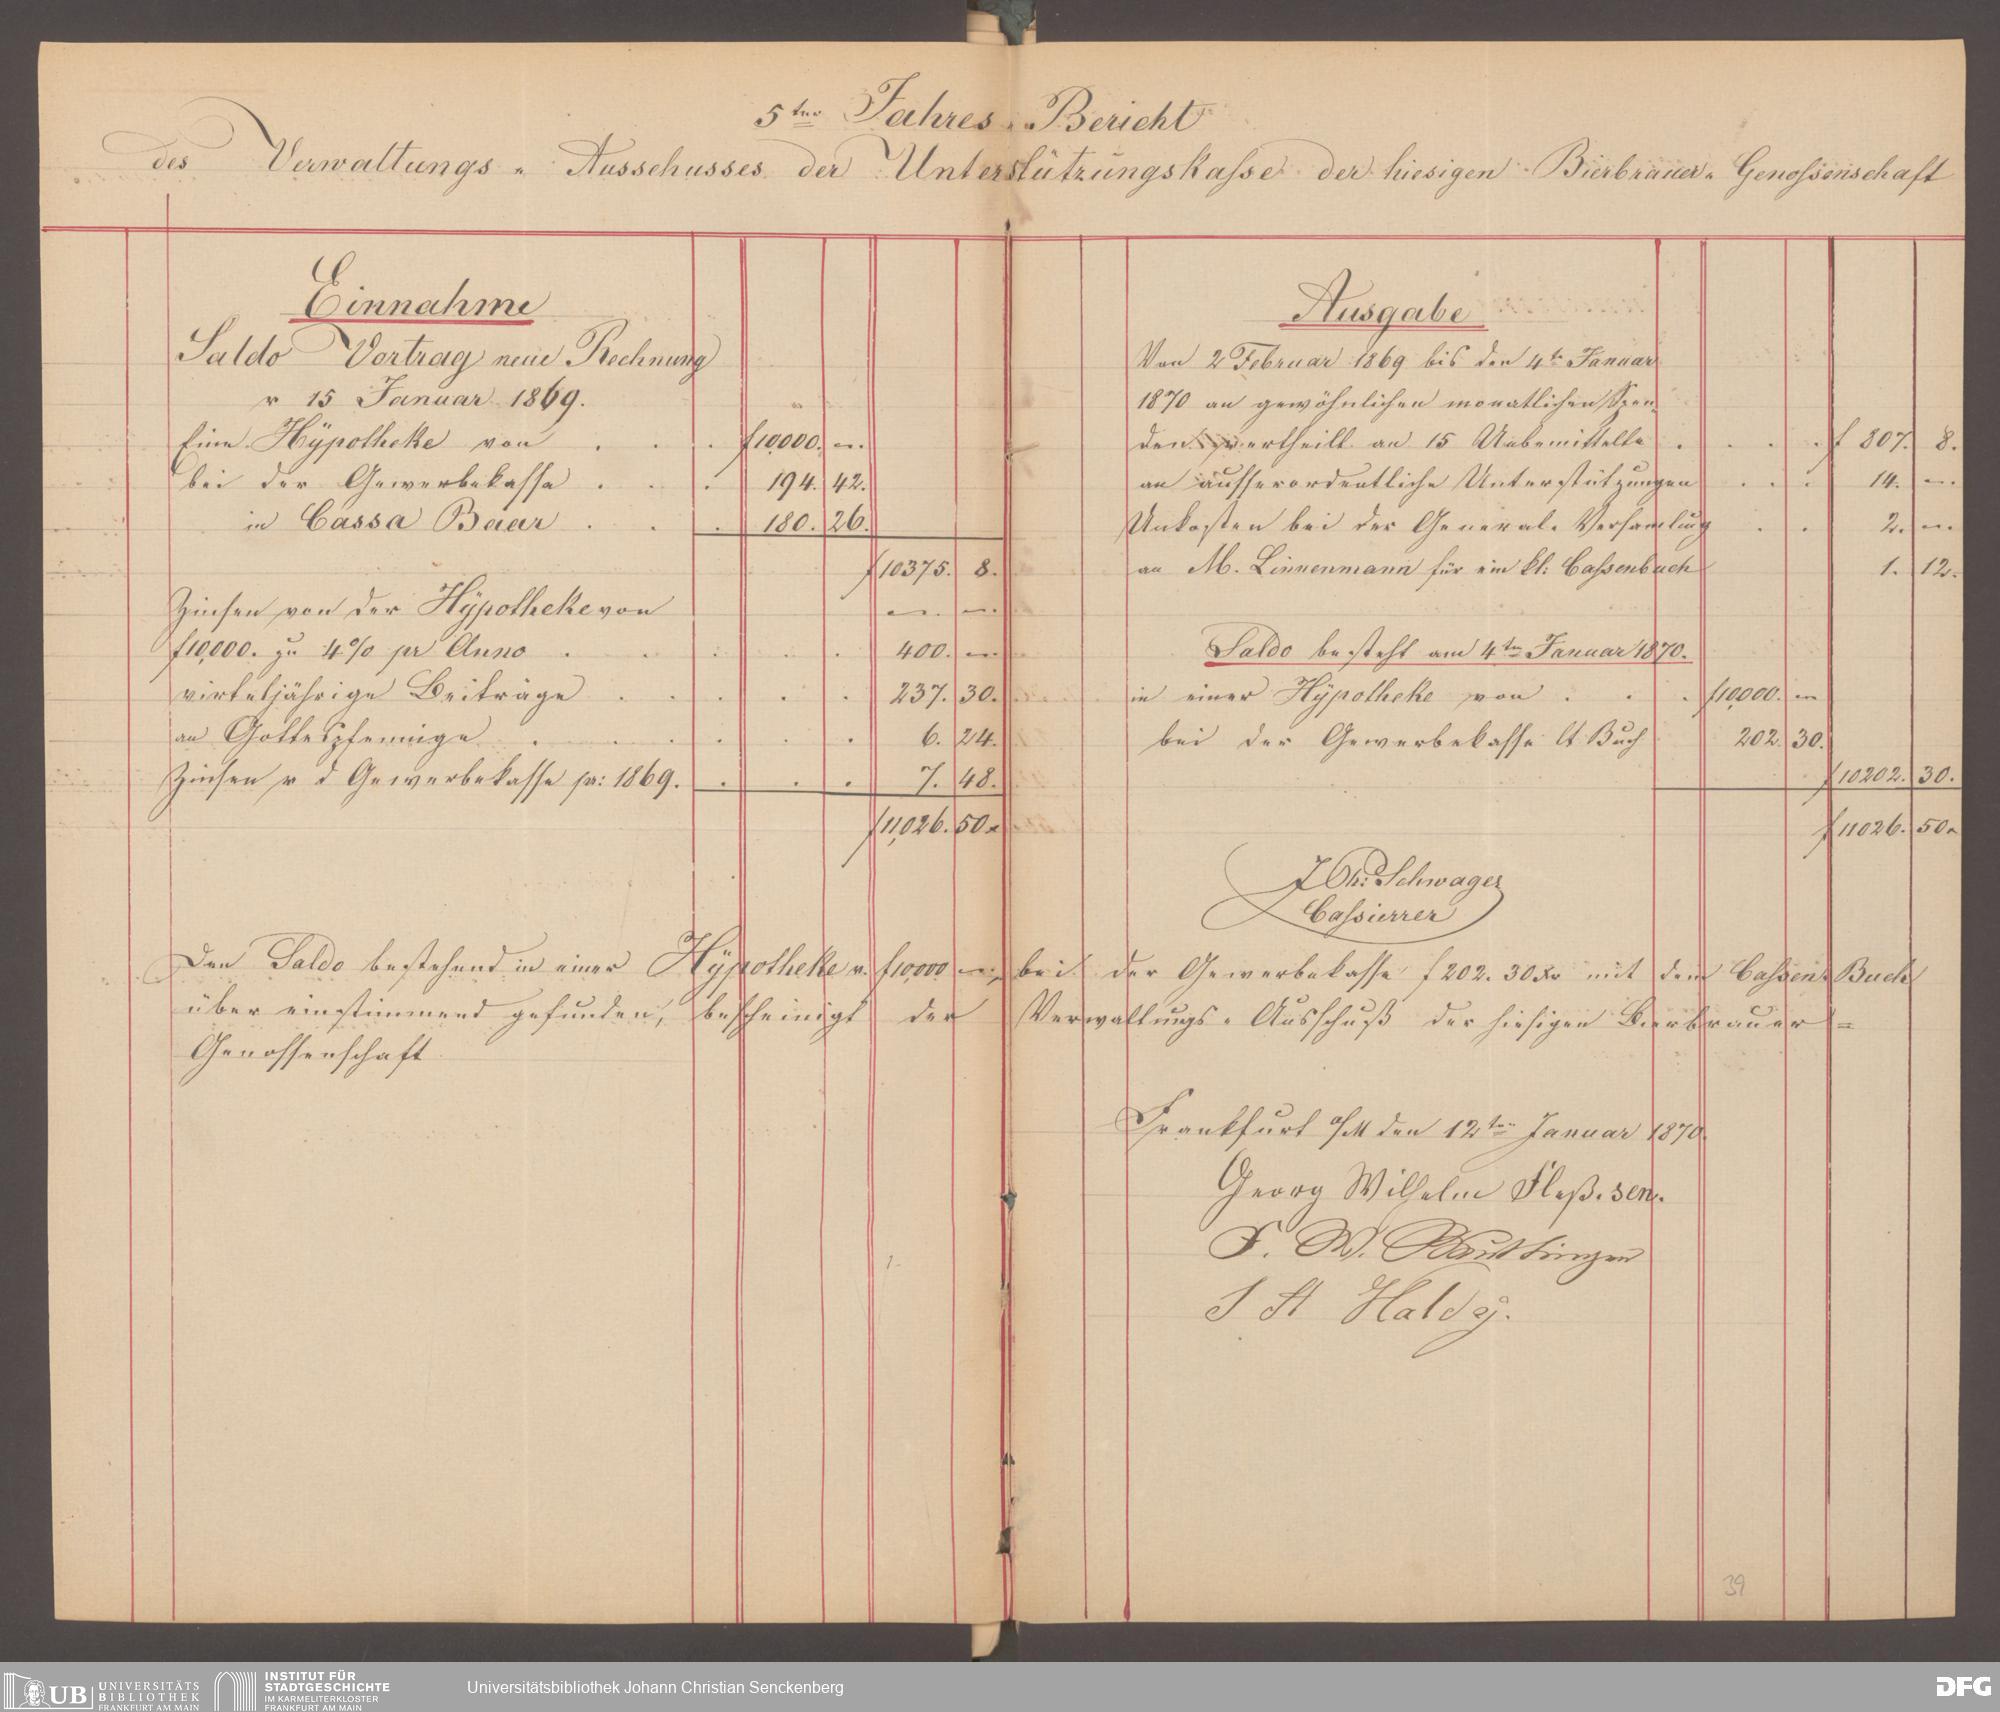 5ter Jahres-Bericht
des Verwaltungs-Ausschusses der Unterstützungskasse der hiesigen Bierbrauer-Genossenschaft
Einnahme
Saldo Vortrag neue Rechnung
v 15 Januar 1869.
Eine Hÿpotheke von . . . f 10,000. —.
bei der Gewerbekasse . . . 194. 42.
in Cassa Baar . . . 180. 26.
f 10375. 8.
Zinsen von der Hÿpotheke von —. —.
f 10,000. zu 4% pr Anno . . . . . 400. —.
virteljährige Beiträge . . . . . 237. 30.
an Gottespfennige . . . . . 6. 24.
Zinsen v d Gewerbekasse pr: 1869. . . . 7. 48.
f 11,026. 50
Ausgabe
Von 2 Februar 1869 bis den 4tn Januar
1870 an gewöhnlichen monatlichen Spen-
den vertheilt an 15 Unbemittelte . . . . f 807. 8.
an aufserordentliche Unterstützungen . . . 14. —.
Unkosten bei der General-Versamlung . . 2. —.
an M. Linnenmann für ein kl: Cassenbuch 1. 12.
Saldo besteht am 4ten Januar 1870.
in einer Hÿpotheke von . . . f 10,000. —
bei der Gewerbekasse lt Buch 202. 30.
f 10202. 30.
f 11026. 50
Schwager
Cassierrer
Den Saldo bestehend in einer Hÿpotheke v. f 10,000 —, bei der Gewerbekasse f 202. 30 Xr mit dem Cassen-Buch
über einstimmend gefunden, bescheinigt der Verwaltungs-Ausschuß der hiesigen Bierbrauer=
Genossenschaft
Frankfurt a/M den 12ten Januar 1870.
Georg Wilhelm Fleß. sen.
F. W.
Haldÿ.
39
UB UNIVERSITÄTS
BIBLIOTHEK
FRANKFURT AM MAIN
INSTITUT FÜR
STADTGESCHICHTE
IM KARMELITERKLOSTER
FRANKFURT AM MAIN
Universitätsbibliothek Johann Christian Senckenberg
DFG